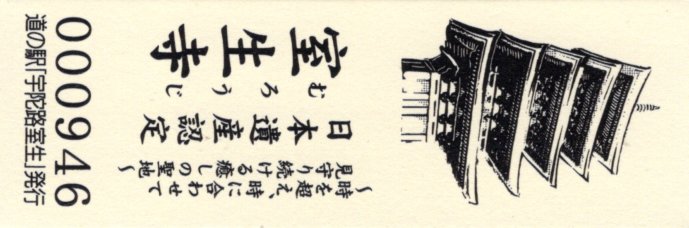 室生寺
むろうじ
日本遺産認定
～時を超え、時に合わせて
見守り続ける癒しの聖地～
000946
道の駅「宇陀路室生」発行